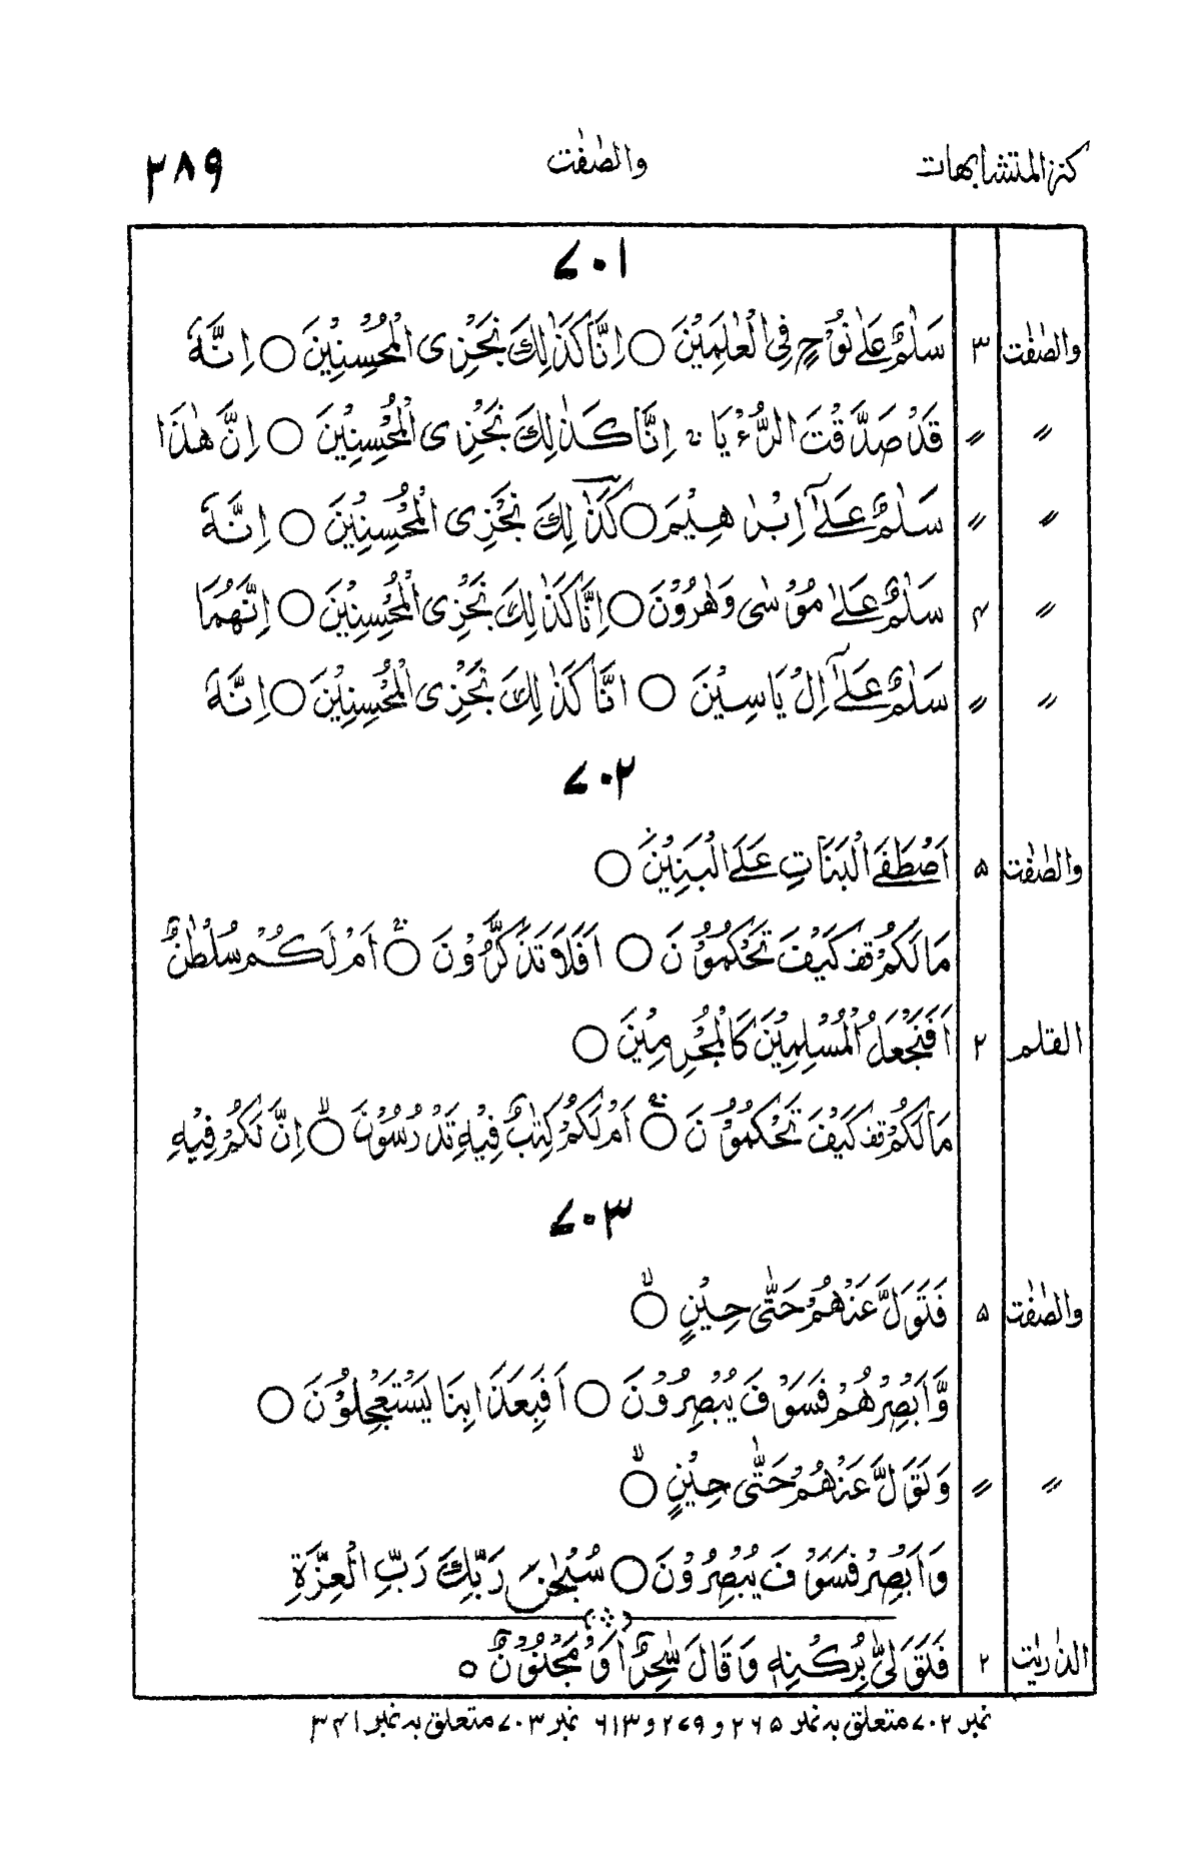 كنز المتشابهات والصّٰفّٰت ٢٨٩
٧٠١
والصّٰفّٰت ٣ سَلٰمٌ عَلٰى نُوْحٍ فِى الْعٰلَمِيْنَ ○ اِنَّا كَذٰلِكَ نَجْزِى الْمُحْسِنِيْنَ ○ اِنَّهٗ
〃 〃 قَدْ صَدَّقْتَ الرُّءْيَا ۚ اِنَّا كَذٰلِكَ نَجْزِى الْمُحْسِنِيْنَ ○ اِنَّ هٰذَا
〃 〃 سَلٰمٌ عَلٰٓى اِبْرٰهِيْمَ ○ كَذٰلِكَ نَجْزِى الْمُحْسِنِيْنَ ○ اِنَّهٗ
〃 ۴ سَلٰمٌ عَلٰى مُوْسٰى وَهٰرُوْنَ ○ اِنَّا كَذٰلِكَ نَجْزِى الْمُحْسِنِيْنَ ○ اِنَّهُمَا
〃 〃 سَلٰمٌ عَلٰٓى اِلْ يَاسِيْنَ ○ اِنَّا كَذٰلِكَ نَجْزِى الْمُحْسِنِيْنَ ○ اِنَّهٗ
٧٠٢
والصّٰفّٰت ۵ اَصْطَفَى الْبَنَاتِ عَلَى الْبَنِيْنَ ○
مَا لَكُمْ قف كَيْفَ تَحْكُمُوْنَ ○ اَفَلَا تَذَكَّرُوْنَ ○ۚ اَمْ لَكُمْ سُلْطٰنٌ
القلم ٢ اَفَنَجْعَلُ الْمُسْلِمِيْنَ كَالْمُجْرِمِيْنَ ○
مَا لَكُمْ قف كَيْفَ تَحْكُمُوْنَ ○ۚ اَمْ لَكُمْ كِتٰبٌ فِيْهِ تَدْرُسُوْنَ ○ۙ اِنَّ لَكُمْ فِيْهِ
٧٠٣
والصّٰفّٰت ۵ فَتَوَلَّ عَنْهُمْ حَتّٰى حِيْنٍ ○ۙ
وَّاَبْصِرْهُمْ فَسَوْفَ يُبْصِرُوْنَ ○ اَفَبِعَذَابِنَا يَسْتَعْجِلُوْنَ ○
〃 〃 وَتَوَلَّ عَنْهُمْ حَتّٰى حِيْنٍ ○ۙ
وَاَبْصِرْ فَسَوْفَ يُبْصِرُوْنَ ○ سُبْحٰنَ رَبِّكَ رَبِّ الْعِزَّةِ
الذّٰريٰت ٢ فَتَوَلّٰى بِرُكْنِهٖ وَقَالَ سٰحِرٌ اَوْ مَجْنُوْنٌ ○
نمبر ٧٠٢ متعلق بہ نمبر ٢٦۵ و ٢٧٩ و ٦١٣ نمبر ٧٠٣ متعلق بہ نمبر ٣۴١